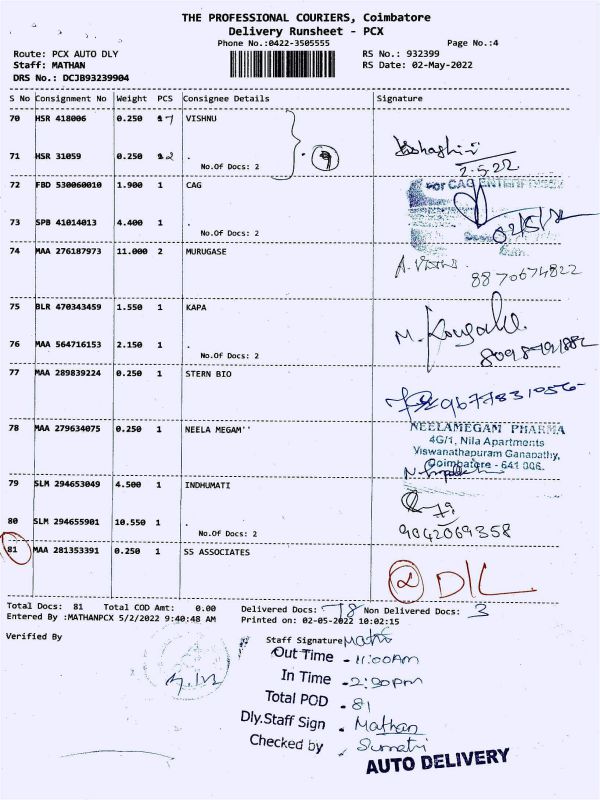 THE PROFESSIONAL COURIERS, Coimbatore
Delivery Runsheet - PCX
Phone No.:0422-3505555 Page No.:4
Route: PCX AUTO DLY RS No.: 932399
Staff: MATHAN RS Date: 02-May-2022
DRS No.: DCJB93239904
S No Consignment No Weight PCS Consignee Details Signature
70 HSR 418006 0.250 1 VISHNU
71 HSR 31059 0.250 2 .
No.Of Docs: 2
2.5.22
72 FBD 530060010 1.900 1 CAG
For CAG ENTERPRISES
73 SPB 41014013 4.400 1 .
No.Of Docs: 2
02/5/22
74 MAA 276187973 11.000 2 MURUGASE
8870674822
75 BLR 470343459 1.550 1 KAPA
76 MAA 564716153 2.150 1 .
No.Of Docs: 2
77 MAA 289839224 0.250 1 STERN BIO
78 MAA 279634075 0.250 1 NEELA MEGAM''
NEELAMEGAM PHARMA
4G/1, Nila Apartments
Viswanathapuram Ganapathy,
Coimbatore - 641 006.
79 SLM 294653049 4.500 1 INDHUMATI
80 SLM 294655901 10.550 1 .
No.Of Docs: 2
9042069358
81 MAA 281353391 0.250 1 SS ASSOCIATES
D/L
Total Docs: 81 Total COD Amt: 0.00 Delivered Docs: 78 Non Delivered Docs: 3
Entered By :MATHANPCX 5/2/2022 9:40:48 AM Printed on: 02-05-2022 10:02:15
Verified By Staff Signature
Out Time - 11:00AM
In Time - 2:30pm
Total POD - 81
Dly.Staff Sign - Mathan
Checked by - Sumatri
AUTO DELIVERY